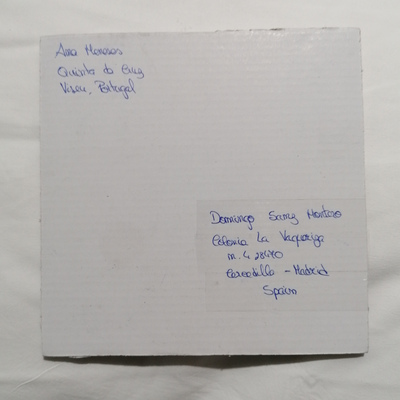 Ana Meneses
Quinta da Cruz
Viseu, Portugal
Domingo Sanz Montero
Colonia La Vaqueriza
m. 4 28470
Cercedilla - Madrid
Spain